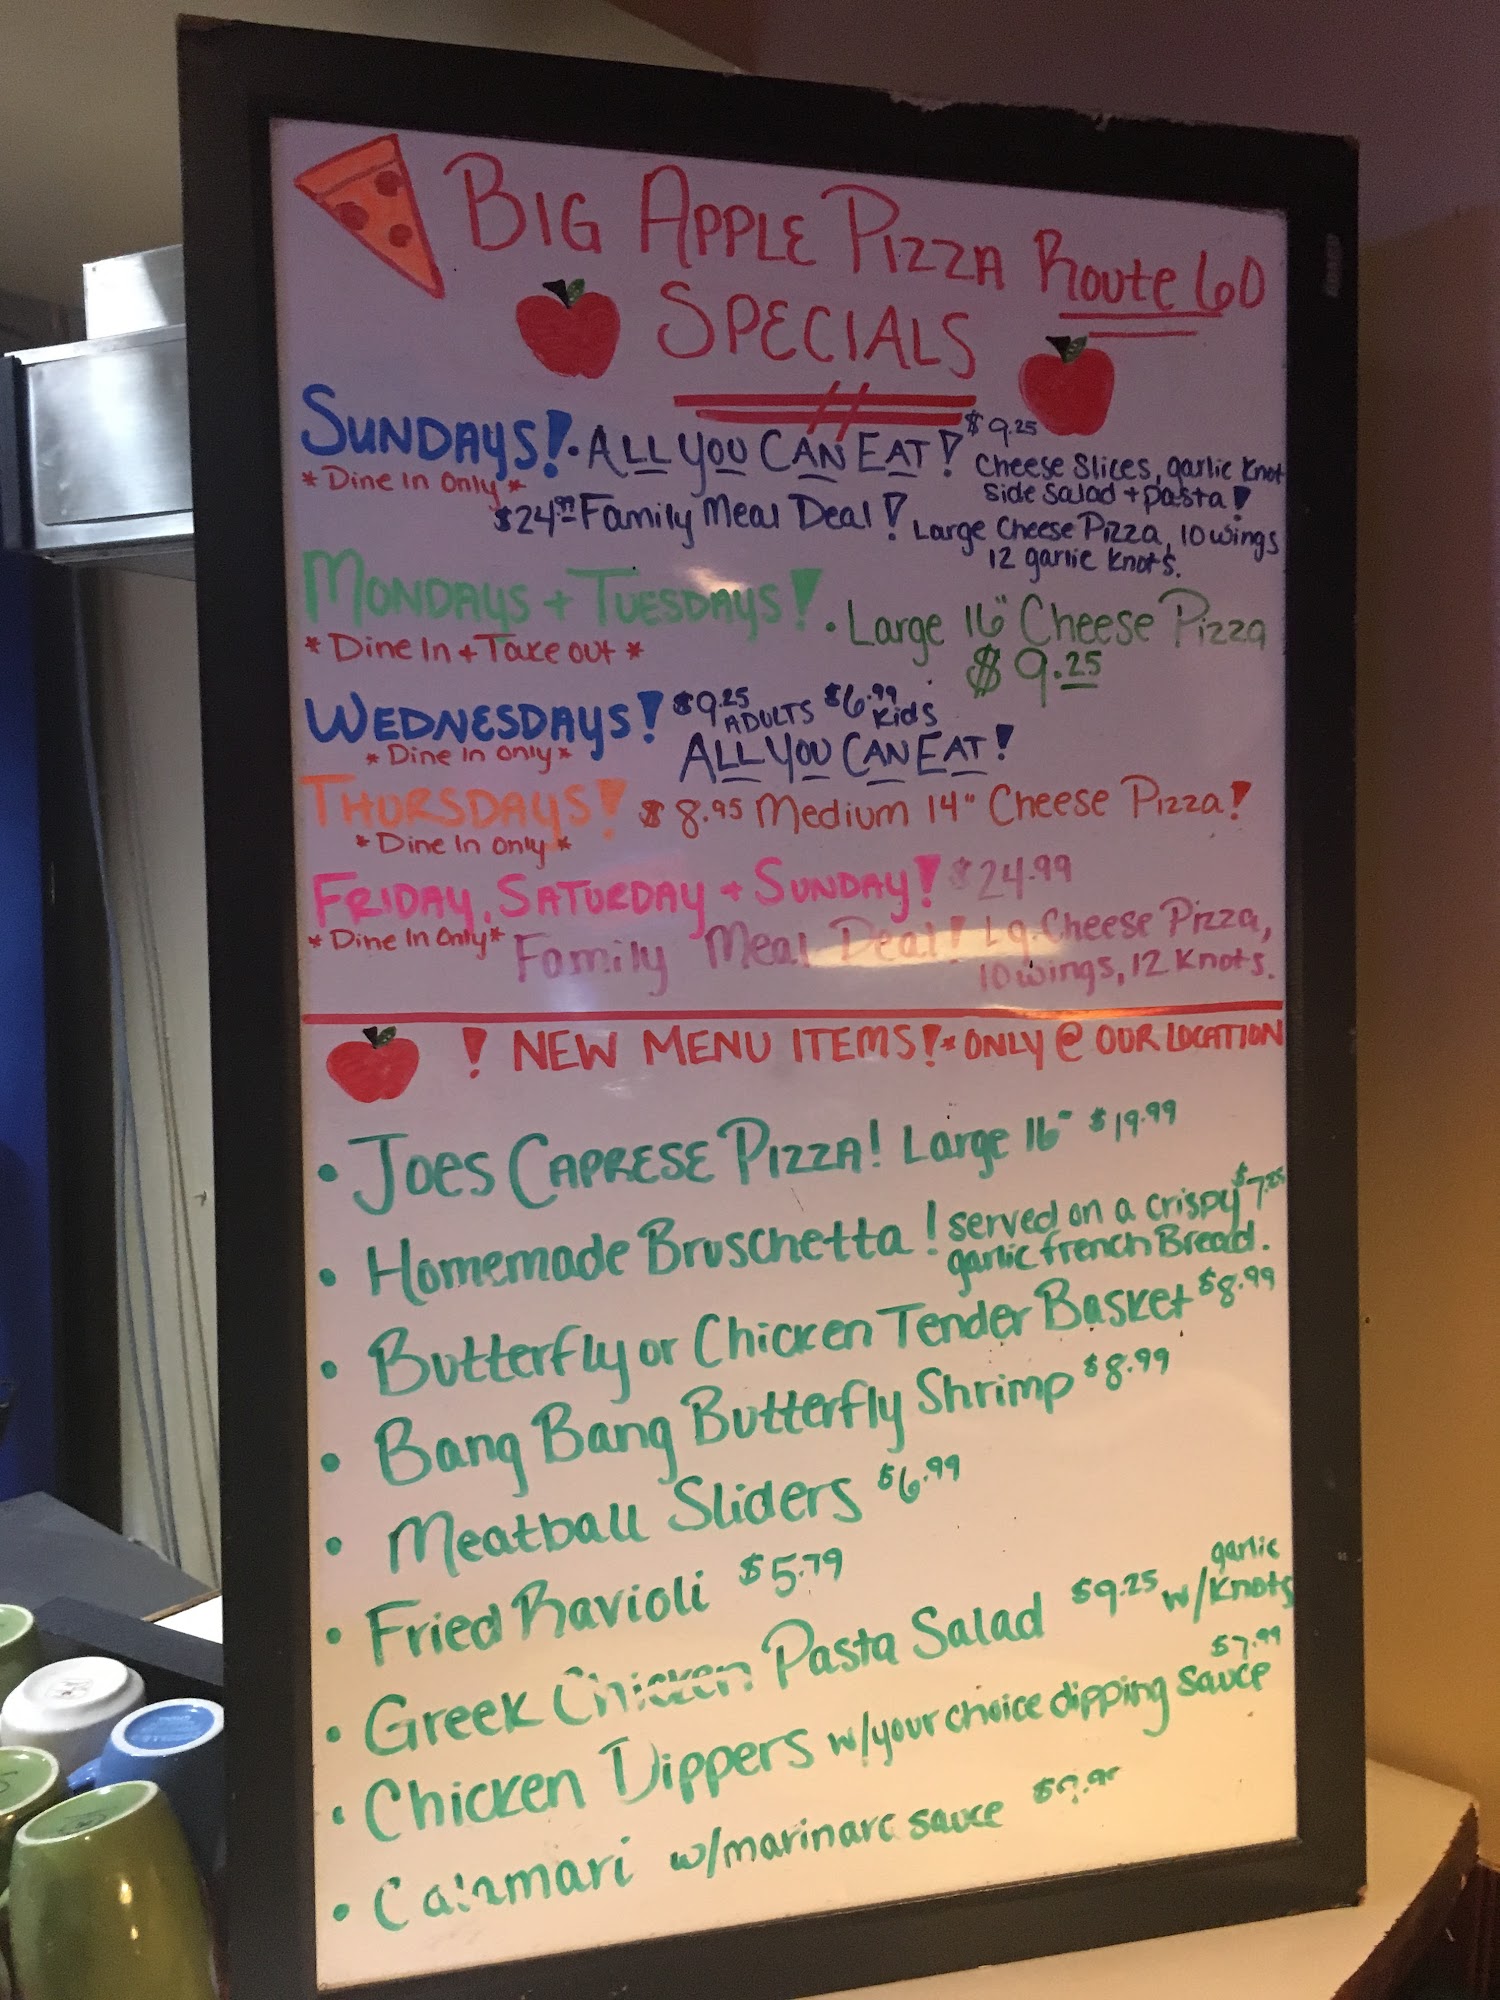 BIG APPLE PIZZA Route 60
SPECIALS
SUNDAYS! • ALL YOU CAN EAT! $9.25
Cheese Slices, garlic Knot
* Dine In Only *
side salad + pasta!
$24.99 Family Meal Deal! Large Cheese Pizza, 10 wings
12 garlic Knots.
MONDAYS + TUESDAYS! • Large 16" Cheese Pizza
* Dine In + Take out *
$9.25
WEDNESDAYS! $9.25 ADULTS $6.99 Kids
* Dine In Only *
ALL YOU CAN EAT!
THURSDAYS! $8.95 Medium 14" Cheese Pizza!
* Dine In Only *
FRIDAY, SATURDAY + SUNDAY! $24.99
* Dine In Only *
Family Meal Deal! Lg. Cheese Pizza,
10 wings, 12 Knots.
! NEW MENU ITEMS! * ONLY @ OUR LOCATION
• JOES CAPRESE PIZZA! Large 16" $19.99
• Homemade Bruschetta! served on a crispy $7.25
garlic french Bread.
• Butterfly or Chicken Tender Basket $8.99
• Bang Bang Butterfly Shrimp $8.99
• Meatball Sliders $6.99
• Fried Ravioli $5.79
• Greek Chicken Pasta Salad $9.25 w/ garlic Knots
• Chicken Dippers w/your choice dipping sauce $7.99
• Calamari w/marinara sauce